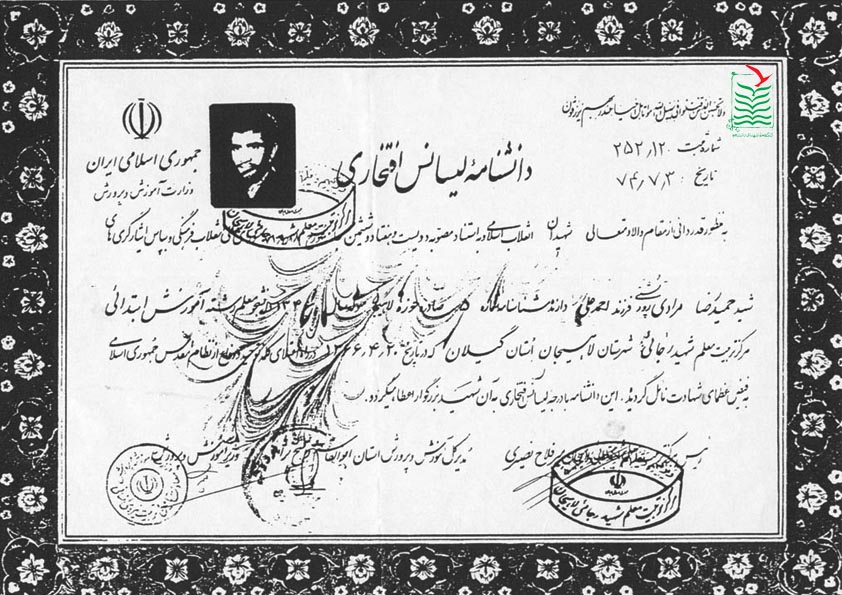 ولا تحسبن الذین قتلوا فی سبیل الله امواتا بل احیاء عند ربهم یرزقون
شماره ثبت ۲۵۲،۱۲۰
تاریخ ۷۴،۷،۳۰
جمهوری اسلامی ایران
وزارت آموزش و پرورش
دانشنامهٔ لیسانس افتخاری
به منظور قدردانی از مقام والا و متعالی شهیدان انقلاب اسلامی و به استناد مصوبه دویست و هفتاد و ششمین انقلاب فرهنگی و بپاس ایثارگری های
شهید حمیدرضا مرادی فرزند احمدعلی دارنده شناسنامه شماره ۵ صادره حوزه لاهیجان دانشجو معلم رشته آموزش ابتدائی
مرکز تربیت معلم شهید رجائی شهرستان لاهیجان استان گیلان که در تاریخ ۱۳۶۶،۴،۲۰ در راه اعتلای کلمه توحید و دفاع از نظام مقدس جمهوری اسلامی
به فیض عظمای شهادت نائل گردیدند. این دانشنامه با درجه لیسانس افتخاری به آن شهید بزرگوار اعطا میگردد.
رئیس مرکز فلاح نصیری
مدیرکل آموزش و پرورش استان
وزیر آموزش و پرورش
مرکز تربیت معلم شهید رجائی لاهیجان